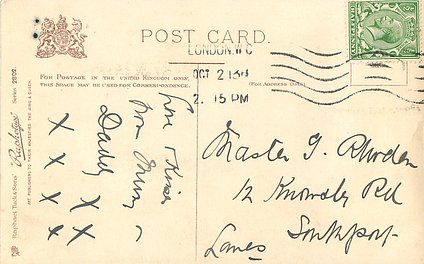 POST CARD.
FOR POSTAGE IN THE UNITED KINGDOM ONLY,
THIS SPACE MAY BE USED FOR CORRESPONDENCE.
(FOR ADDRESS ONLY.)
LONDON. W.C
OCT 2 13
2. 15 PM
Love & Kisses
from Mummy
Daddy X X
X X X X
Master J. Rhoden
12 Knowsley Rd
Southport
Lancs
Raphael Tuck & Sons' "Raphotype" Series 2802.
ART PUBLISHERS TO THEIR MAJESTIES THE KING & QUEEN.